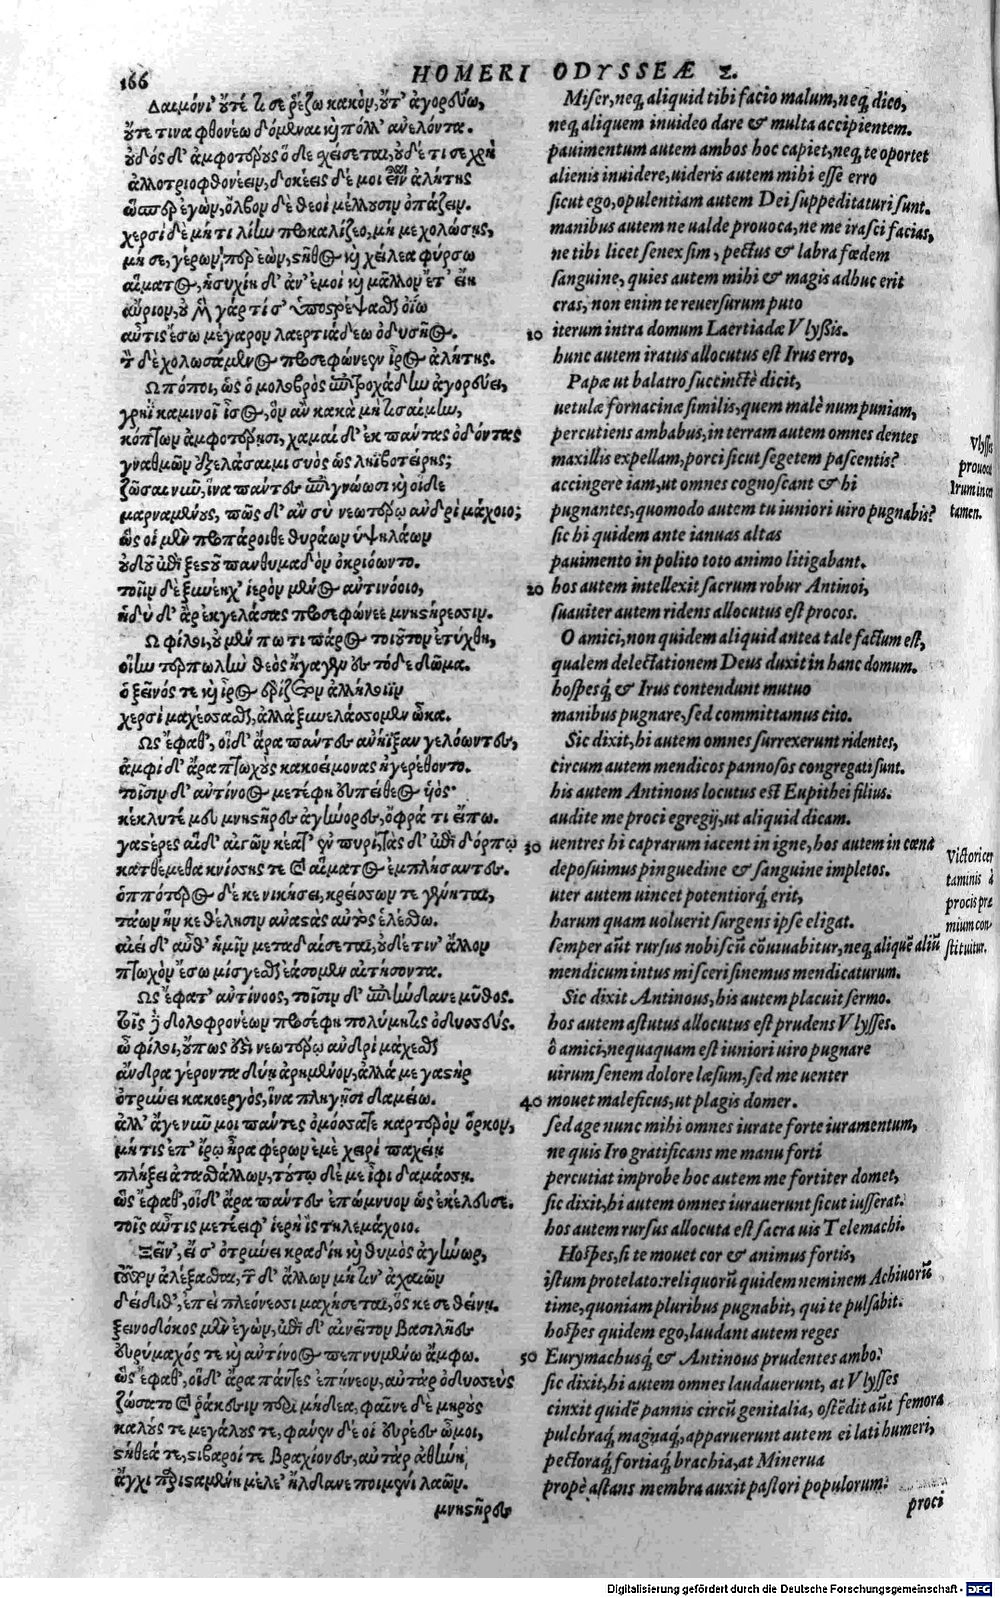 166
HOMERI ODYSSEÆ Σ.
Δαιμόνι' οὔτέ τι σε ῥέζω κακὸν, οὔτ' ἀγορεύω,
οὔτε τινα φθονέω δόμεναι καὶ πόλλ' ἀνελόντα.
οὐδὸς δ' ἀμφοτέρους ὅδε χείσεται, οὐδέ τι σε χρὴ
ἀλλοτρίων φθονέειν, δοκέεις δέ μοι εἶναι ἀλήτης
ὥσπερ ἐγὼν, ὄλβον δὲ θεοὶ μέλλουσιν ὀπάζειν.
χερσὶ δὲ μή τι λίην προκαλίζεο, μή με χολώσῃς,
μή σε, γέρων περ ἐὼν, στῆθος καὶ χείλεα φύρσω
αἵματος, ἡσυχίη δ' ἂν ἐμοὶ καὶ μᾶλλον ἔτ' εἴη
αὔριον, οὐ μὴ γάρ τί σ' ὑποστρέψεσθαι ὀΐω
αὖτις ἔσω μέγαρον λαερτιάδεω ὀδυσῆος.
τὸν δὲ χολωσάμενος προσεφώνεεν ἶρος ἀλήτης.
Ω πόποι, ὡς ὁ μολοβρὸς ἐπιτροχάδην ἀγορεύει,
γρηῒ καμινοῖ ἶσος, ὃν ἂν κακὰ μητισαίμην,
κόπτων ἀμφοτέρῃσι, χαμαὶ δ' ἐκ πάντας ὀδόντας
γναθμῶν ἐξελάσαιμι συὸς ὡς ληϊβοτείρης;
ζῶσαι νῦν, ἵνα πάντες ἐπιγνώωσι καὶ οἵδε
μαρναμένους, πῶς δ' ἂν σὺ νεωτέρῳ ἀνδρὶ μάχοιο;
ὣς οἱ μὲν προπάροιθε θυράων ὑψηλάων
οὐδοῦ ἐπὶ ξεστοῦ πανθυμαδὸν ὀκριόωντο.
τοῖιν δὲ ξυνέηχ' ἱερὸν μένος αὐτινόοιο,
ἡδὺ δ' ἄρ ἐκγελάσας προσεφώνεε μνηστήρεσσιν.
Ω φίλοι, οὐ μέν πω τι πάρος τοιοῦτον ἐτύχθη,
οἵην τερπωλὴν θεὸς ἤγαγεν ἐς τόδε δῶμα.
ὁ ξεῖνός τε καὶ ἶρος ἐρίζετον ἀλλήλοιϊν
χερσὶ μαχέσσασθαι, ἀλλὰ ξυνελάσσομεν ὦκα.
Ως ἔφαθ', οἱ δ' ἄρα πάντες ἀνήϊξαν γελόωντες,
ἀμφὶ δ' ἄρα πτωχοὺς κακοείμονας ἠγερέθοντο.
τοῖσιν δ' αὐτίνοος μετέφη εὐπείθεος υἱός·
κέκλυτέ μευ μνηστῆρες ἀγήνορες, ὄφρά τι εἴπω.
γαστέρες αἵδ' αἰγῶν κέατ' ἐν πυρὶ, τὰς δ' ἐπὶ δόρπῳ
κατθέμεθα κνίσσης τε καὶ αἵματος ἐμπλήσαντες.
ὁππότερος δέ κε νικήσει, κρείσσων τε γένηται,
τάων ἥν κε θέλῃσιν ἀναστὰς αὐτὸς ἑλέσθω.
αἰεὶ δ' αὖθ' ἡμῖν μεταδαίσεται, οὐδέ τιν' ἄλλον
πτωχὸν ἔσω μίσγεσθαι ἐάσομεν αἰτήσοντα.
Ως ἔφατ' αὐτίνοος, τοῖσιν δ' ἐπιήνδανε μῦθος.
τοῖς δὲ δολοφρονέων προσέφη πολύμητις ὀδυσσεύς.
ὦ φίλοι, οὔπως ἔστι νεωτέρῳ ἀνδρὶ μάχεσθαι
ἄνδρα γέροντα δύῃ ἀρημένον, ἀλλά με γαστὴρ
ὀτρύνει κακοεργὸς, ἵνα πληγῇσι δαμείω.
ἀλλ' ἄγε νῦν μοι πάντες ὀμόσσατε καρτερὸν ὅρκον,
μή τις ἐπ' ἴρῳ ἦρα φέρων ἐμὲ χειρὶ παχείῃ
πλήξει ἀτασθάλλων, τούτῳ δέ με ἶφι δαμάσσῃ.
ὣς ἔφαθ', οἱ δ' ἄρα πάντες ἐπώμνυον ὡς ἐκέλευσε.
τοῖς αὖτις μετέειφ' ἱερὴ ἲς τηλεμάχοιο.
Ξεῖν', εἴ σ' ὀτρύνει κραδίη καὶ θυμὸς ἀγήνωρ,
τοῦτον ἀλέξασθαι, τῶν δ' ἄλλων μή τιν' ἀχαιῶν
δείδιθ', ἐπεὶ πλεόνεσσι μαχήσεται, ὅς κέ σε θείνῃ.
ξεινοδόκος μὲν ἐγὼν, ἐπὶ δ' αἰνεῖτον βασιλῆες
εὐρύμαχός τε καὶ αὐτίνοος πεπνυμένω ἄμφω.
ὣς ἔφαθ', οἱ δ' ἄρα πάντες ἐπῄνεον, αὐτὰρ ὀδυσσεὺς
ζώσατο καὶ ῥάκεσιν περὶ μήδεα, φαῖνε δὲ μηροὺς
καλούς τε μεγάλους τε, φάνεν δέ οἱ εὐρέες ὦμοι,
στήθεά τε, στιβαροί τε βραχίονες, αὐτὰρ ἀθήνη
ἄγχι παρισταμένη μέλε' ἤλδανε ποιμένι λαῶν.
μνηστῆρες
Miser, neq; aliquid tibi facio malum, neq; dico,
neq; aliquem inuideo dare & multa accipientem.
pauimentum autem ambos hoc capiet, neq; te oportet
alienis inuidere, uideris autem mihi esse erro
sicut ego, opulentiam autem Dei suppeditaturi sunt.
manibus autem ne ualde prouoca, ne me irasci facias,
ne tibi licet senex sim, pectus & labra fœdem
sanguine, quies autem mihi & magis adhuc erit
cras, non enim te reuersurum puto
10 iterum intra domum Laertiadæ Vlyßis.
hunc autem iratus allocutus est Irus erro,
Papæ ut balatro succinctè dicit,
uetulæ fornacinæ similis, quem malè num puniam,
percutiens ambabus, in terram autem omnes dentes
maxillis expellam, porci sicut segetem pascentis?
accingere iam, ut omnes cognoscant & hi
pugnantes, quomodo autem tu iuniori uiro pugnabis?
sic hi quidem ante ianuas altas
pauimento in polito toto animo litigabant.
20 hos autem intellexit sacrum robur Antinoi,
suauiter autem ridens allocutus est procos.
O amici, non quidem aliquid antea tale factum est,
qualem delectationem Deus duxit in hanc domum.
hospesq; & Irus contendunt mutuo
manibus pugnare, sed committamus cito.
Sic dixit, hi autem omnes surrexerunt ridentes,
circum autem mendicos pannosos congregati sunt.
his autem Antinous locutus est Eupithei filius.
audite me proci egregij, ut aliquid dicam.
30 uentres hi caprarum iacent in igne, hos autem in cœna
deposuimus pinguedine & sanguine impletos.
uter autem uincet potentiorq; erit,
harum quam uoluerit surgens ipse eligat.
semper aũt rursus nobiscũ cõuiuabitur, neq; aliquẽ aliũ
mendicum intus misceri sinemus mendicaturum.
Sic dixit Antinous, his autem placuit sermo.
hos autem astutus allocutus est prudens Vlysses.
ô amici, nequaquam est iuniori uiro pugnare
uirum senem dolore læsum, sed me uenter
40 mouet maleficus, ut plagis domer.
sed age nunc mihi omnes iurate forte iuramentum,
ne quis Iro gratificans me manu forti
percutiat improbe hoc autem me fortiter domet,
sic dixit, hi autem omnes iurauerunt sicut iusserat.
hos autem rursus allocuta est sacra uis Telemachi.
Hospes, si te mouet cor & animus fortis,
istum protelato: reliquorũ quidem neminem Achiuorũ
time, quoniam pluribus pugnabit, qui te pulsabit.
hospes quidem ego, laudant autem reges
50 Eurymachusq; & Antinous prudentes ambo:
sic dixit, hi autem omnes laudauerunt, at Vlysses
cinxit quidẽ pannis circũ genitalia, ostẽdit aũt femora
pulchraq; magnaq;, apparuerunt autem ei lati humeri,
pectoraq; fortiaq; brachia, at Minerua
propè astans membra auxit pastori populorum:
proci
Vlysses
prouocat
Irum in cer
tamen.
Victori cer
taminis à
procis præ
mium con-
stituitur.
Digitalisierung gefördert durch die Deutsche Forschungsgemeinschaft - DFG